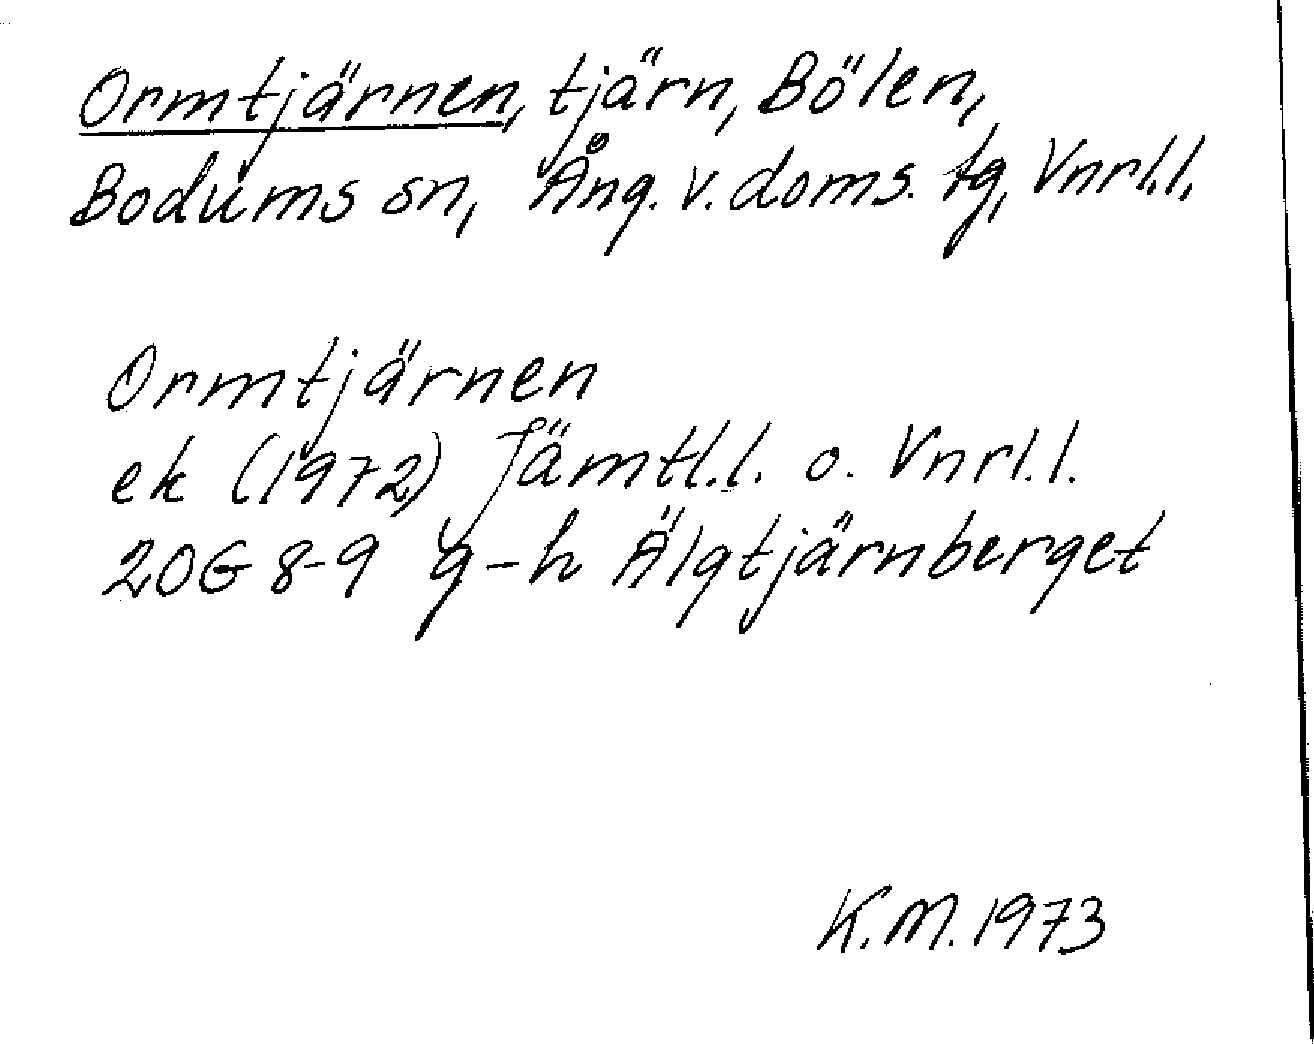 Ormtjärnen, tjärn, Bölen,
Bodums sn, Ång. v. doms. tg, Vnrl.l.
Ormtjärnen
ek (1972) Jämtl.l. o. Vnrl.l.
20G 8-9 g-h Älgtjärnberget
K.M. 1973